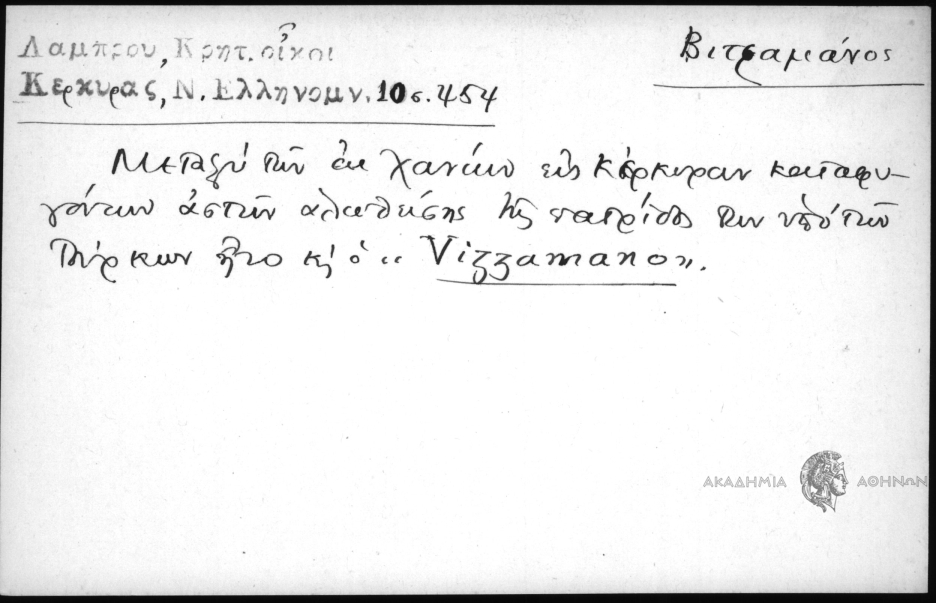 Λαμπρου, Κρητ. οἶκοι
Κερκυρας, Ν. Ελληνομν. 10 σ. 454
Βιτσαμάνος
Μεταξύ τῶν ἐκ Χανίων εἰς Κέρκυραν καταφυ-
γόντων ἀστῶν ἁλωθείσης τῆς πατρίδος των ὑπό τῶν
Τούρκων ἦτο κ ὁ «Vizzamano».
ΑΚΑΔΗΜΙΑ ΑΘΗΝΩΝ